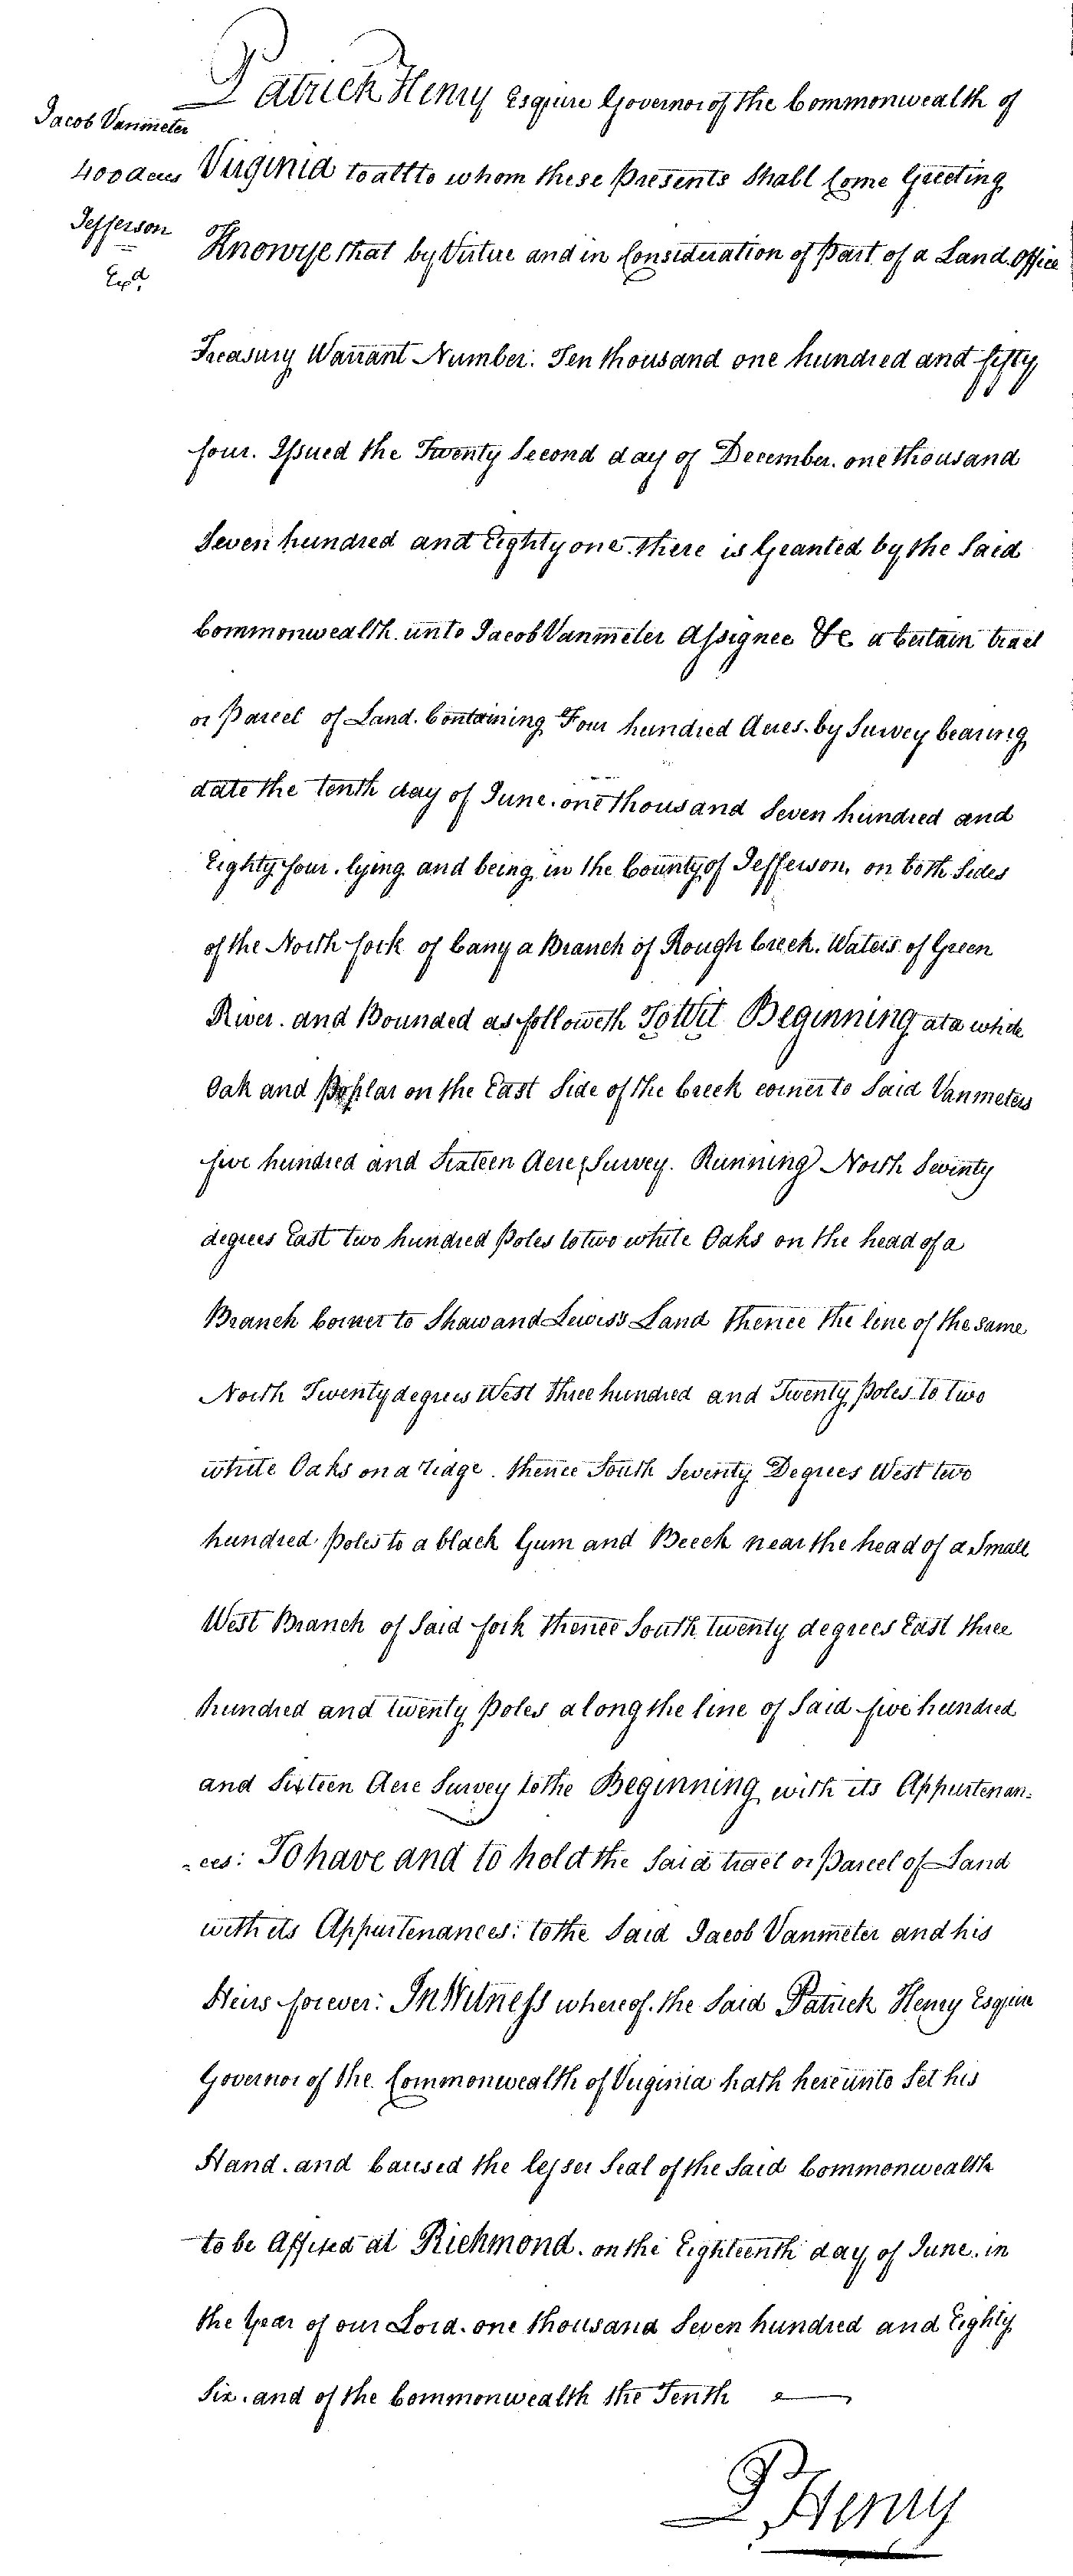 Patrick Henry Esquire Governor of the Commonwealth of
Jacob Vanmeter
400 Acres
Jefferson
Exd.
Virginia to all to whom these Presents Shall Come Greeting
Know ye that by Virtue and in Consideration of Part of a Land Office
Treasury Warrant Number. Ten thousand one hundred and fifty
four. Issued the Twenty Second day of December. one thousand
Seven hundred and Eighty one. there is Granted by the Said
Commonwealth. unto Jacob Vanmeter Assignee &c a Certain tract
or Parcel of Land. Containing Four hundred Acres. by Survey bearing
date the tenth day of June. one thousand Seven hundred and
Eighty four. lying and being in the County of Jefferson, on both Sides
of the North fork of Cany a Branch of Rough Creek. Waters of Green
River. and Bounded as followeth To Wit Beginning at a white
Oak and Poplar on the East Side of the Creek corner to Said Vanmeters
five hundred and Sixteen Acre Survey. Running North Seventy
degrees East two hundred Poles to two white Oaks on the head of a
Branch Corner to Shaw and Lewis's Land thence the line of the same
North Twenty degrees West three hundred and Twenty Poles to two
white Oaks on a ridge. thence South Seventy Degrees West two
hundred Poles to a black Gum and Beech near the head of a Small
West Branch of Said fork thence South twenty degrees East three
hundred and twenty Poles along the line of Said five hundred
and Sixteen Acre Survey to the Beginning with its Appurtenan-
-ces: To have and to hold the Said tract or Parcel of Land
with its Appurtenances: to the Said Jacob Vanmeter and his
Heirs forever: In Witness whereof. the Said Patrick Henry Esquire
Governor of the Commonwealth of Virginia hath hereunto Set his
Hand. and Caused the lesser Seal of the Said Commonwealth
to be Affixed at Richmond. on the Eighteenth day of June. in
the Year of our Lord. one thousand Seven hundred and Eighty
Six. and of the Commonwealth the Tenth
P. Henry